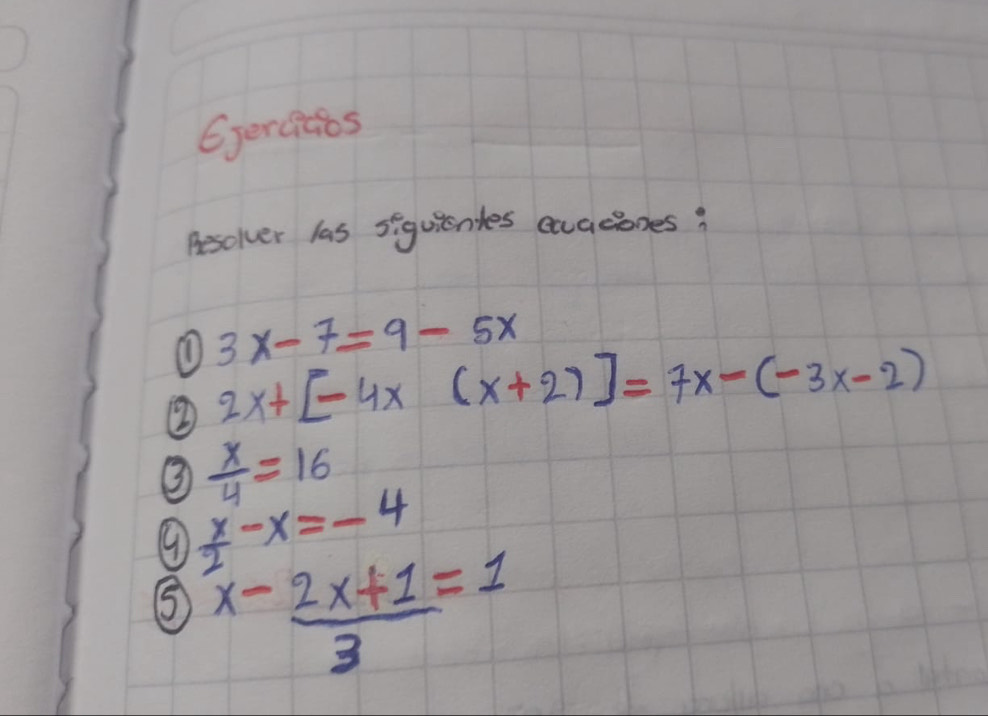 Ejercicios
Resolver las siguientes ecuaciones:
① 3x - 7 = 9 - 5x
② 2x + [-4x (x+2)] = 7x - (-3x-2)
③ x/4 = 16
④ x/2 - x = -4
⑤ x - 2x+1/3 = 1